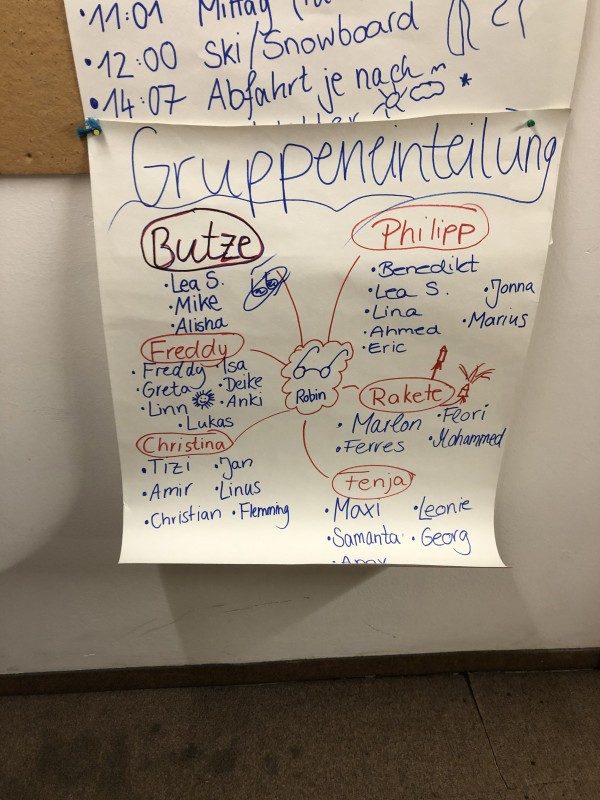 • 11:01 Mittag
• 12:00 Ski/Snowboard
• 14:07 Abfahrt je nach
Gruppeneinteilung
Butze
• Lea S.
• Mike
• Alisha
Philipp
• Benedikt
• Lea S. • Jonna
• Lina • Marius
• Ahmed
• Eric
Freddy
• Freddy • Isa
• Greta • Deike
• Linn • Anki
• Lukas
Robin
Rakete
• Marlon • Flori
• Ferres • Mohammed
Christina
• Tizi • Jan
• Amir • Linus
• Christian • Flemming
Fenja
• Maxi • Leonie
• Samanta • Georg